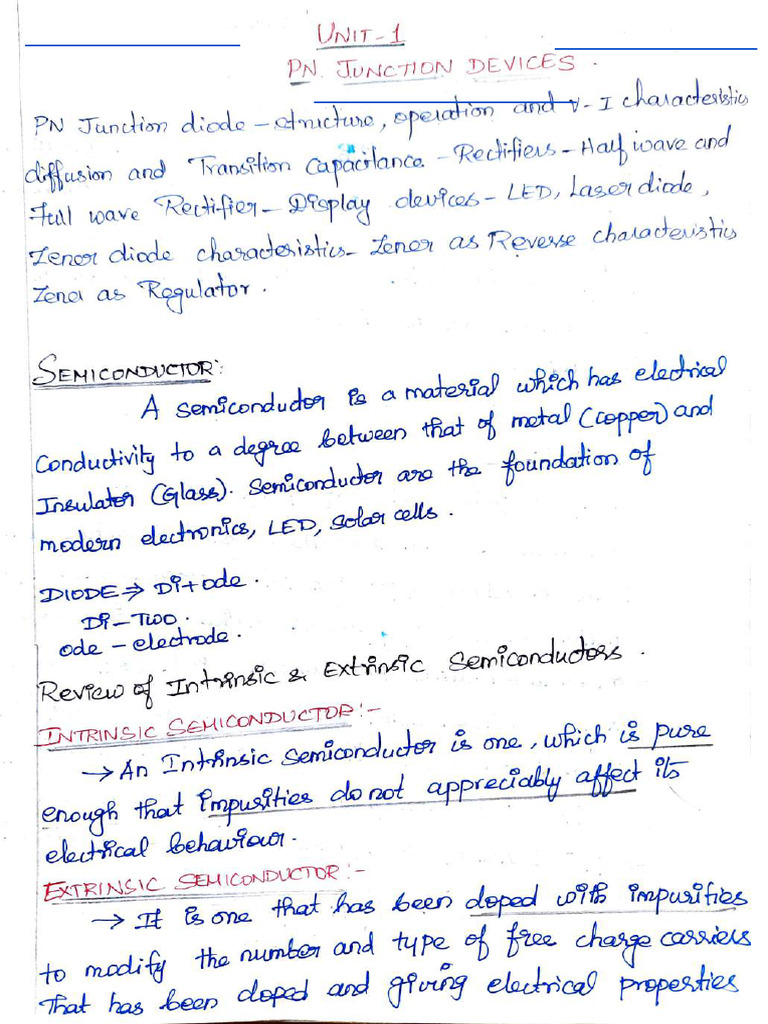 UNIT-1
PN JUNCTION DEVICES.
PN Junction diode - structure, operation and V-I characteristics
diffusion and Transition Capacitance - Rectifiers - Half wave and
Full wave Rectifier - Display devices - LED, Laser diode,
Zener diode characteristics - Zener as Reverse characteristics
Zener as Regulator.
SEMICONDUCTOR:
A semiconductor is a material which has electrical
Conductivity to a degree between that of metal (copper) and
Insulator (Glass). Semiconductor are the foundation of
modern electronics, LED, solar cells.
DIODE ⇒ Di+ode.
Di - Two.
ode - electrode.
Review of Intrinsic & Extrinsic Semiconductors.
INTRINSIC SEMICONDUCTOR:-
→ An Intrinsic semiconductor is one, which is pure
enough that impurities do not appreciably affect its
electrical behaviour.
EXTRINSIC SEMICONDUCTOR:-
→ It is one that has been doped with impurities
to modify the number and type of free charge carriers
That has been doped and giving electrical properties